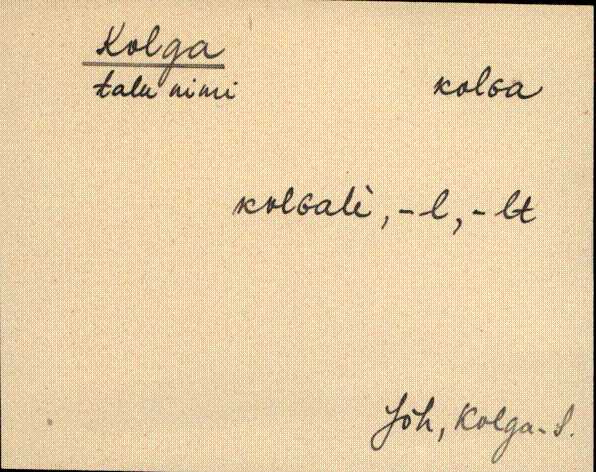 Kolga
talu nimi kolGa
kolGalè, -l, -lt
Jõh, Kolga-S.